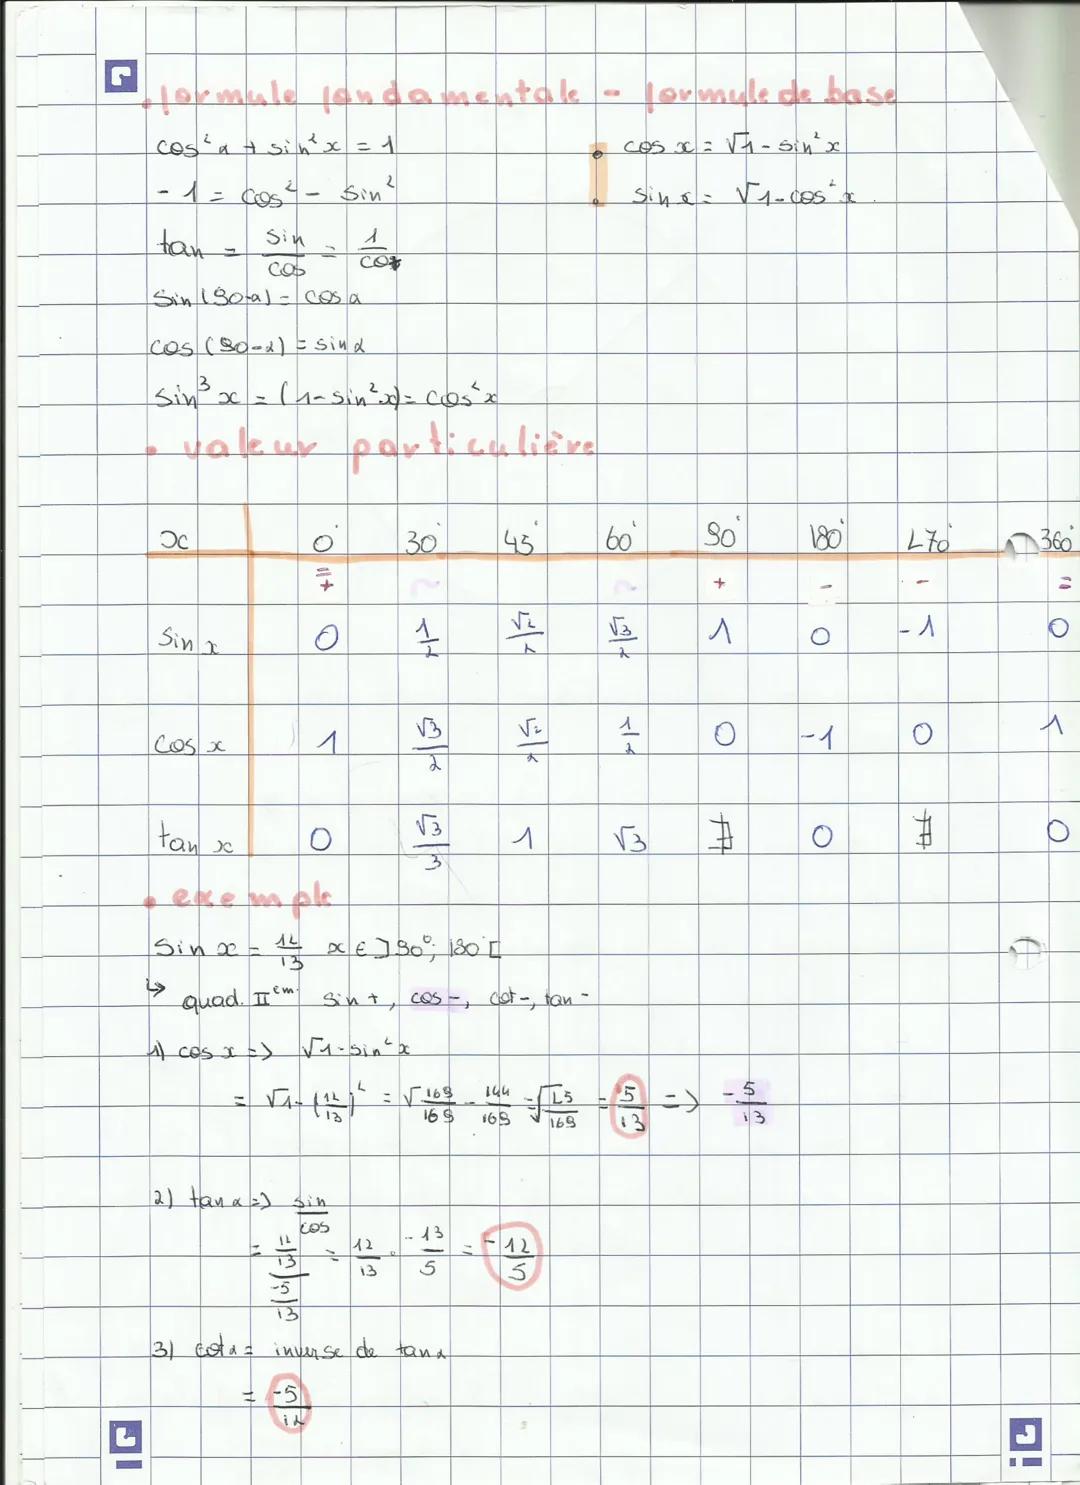 • formule fondamentale - formule de base
cos²α + sin²x = 1
• cos x = √1 - sin²x
- 1 = cos² - sin²
• sin x = √1 - cos²x.
tan = sin/cos = 1/cot
sin (90-α) = cos α
cos (90-α) = sin α
sin³x = (1-sin²x) = cos²x
• valeur particulière
x 0° 30° 45° 60° 90° 180° 270° 360°
= + ~ ~ + - - =
sin x 0 1/2 √2/2 √3/2 1 0 -1 0
cos x 1 √3/2 √2/2 1/2 0 -1 0 1
tan x 0 √3/3 1 √3 ∄ 0 ∄ 0
• exemple
sin x = 12/13 x ∈ ]90°; 180°[
↳ quad. IIem. sin +, cos -, cot -, tan -
1) cos x => √1 - sin²x
= √1 - (12/13)² = √169/169 - 144/169 = √25/169 = 5/13 => -5/13
2) tan α => sin/cos
= 12/13 / -5/13 = 12/13 · -13/5 = -12/5
3) cot α = inverse de tan α
= -5/12